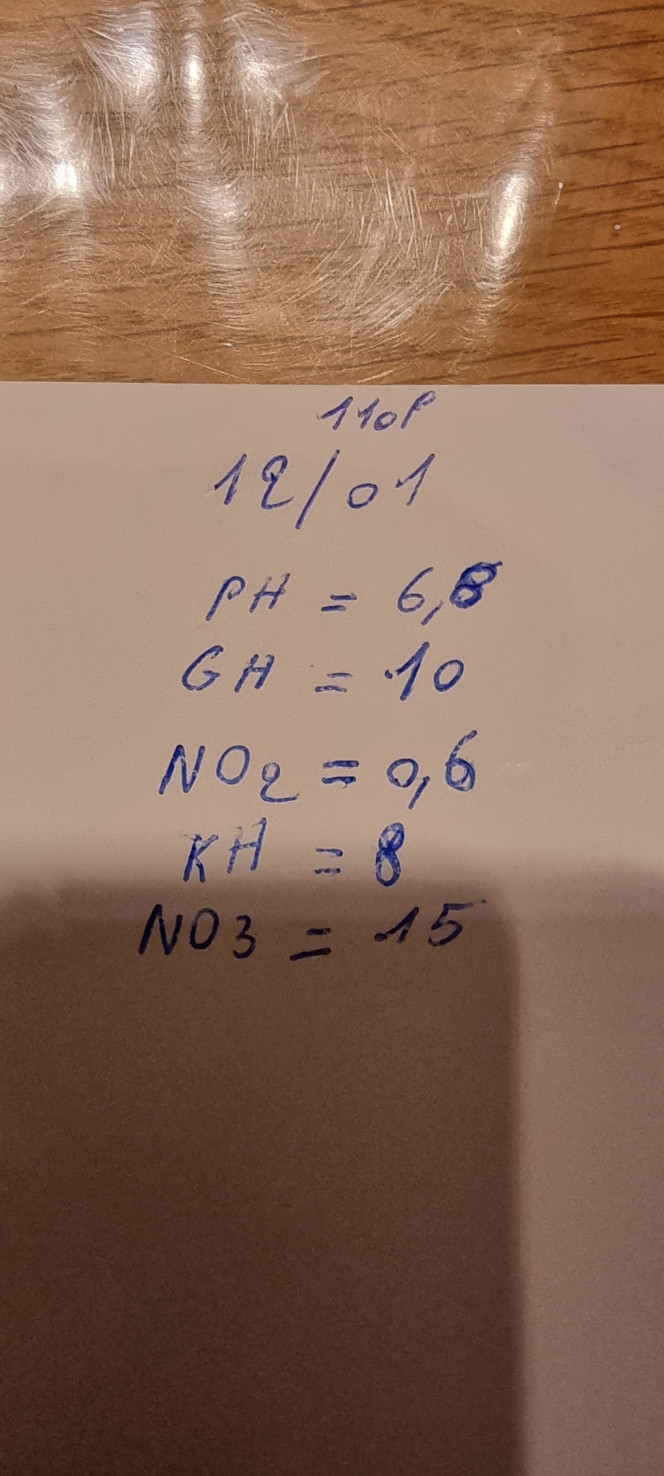 110P
12/01
PH = 6,8
GH = 10
NO2 = 0,6
KH = 8
NO3 = 15